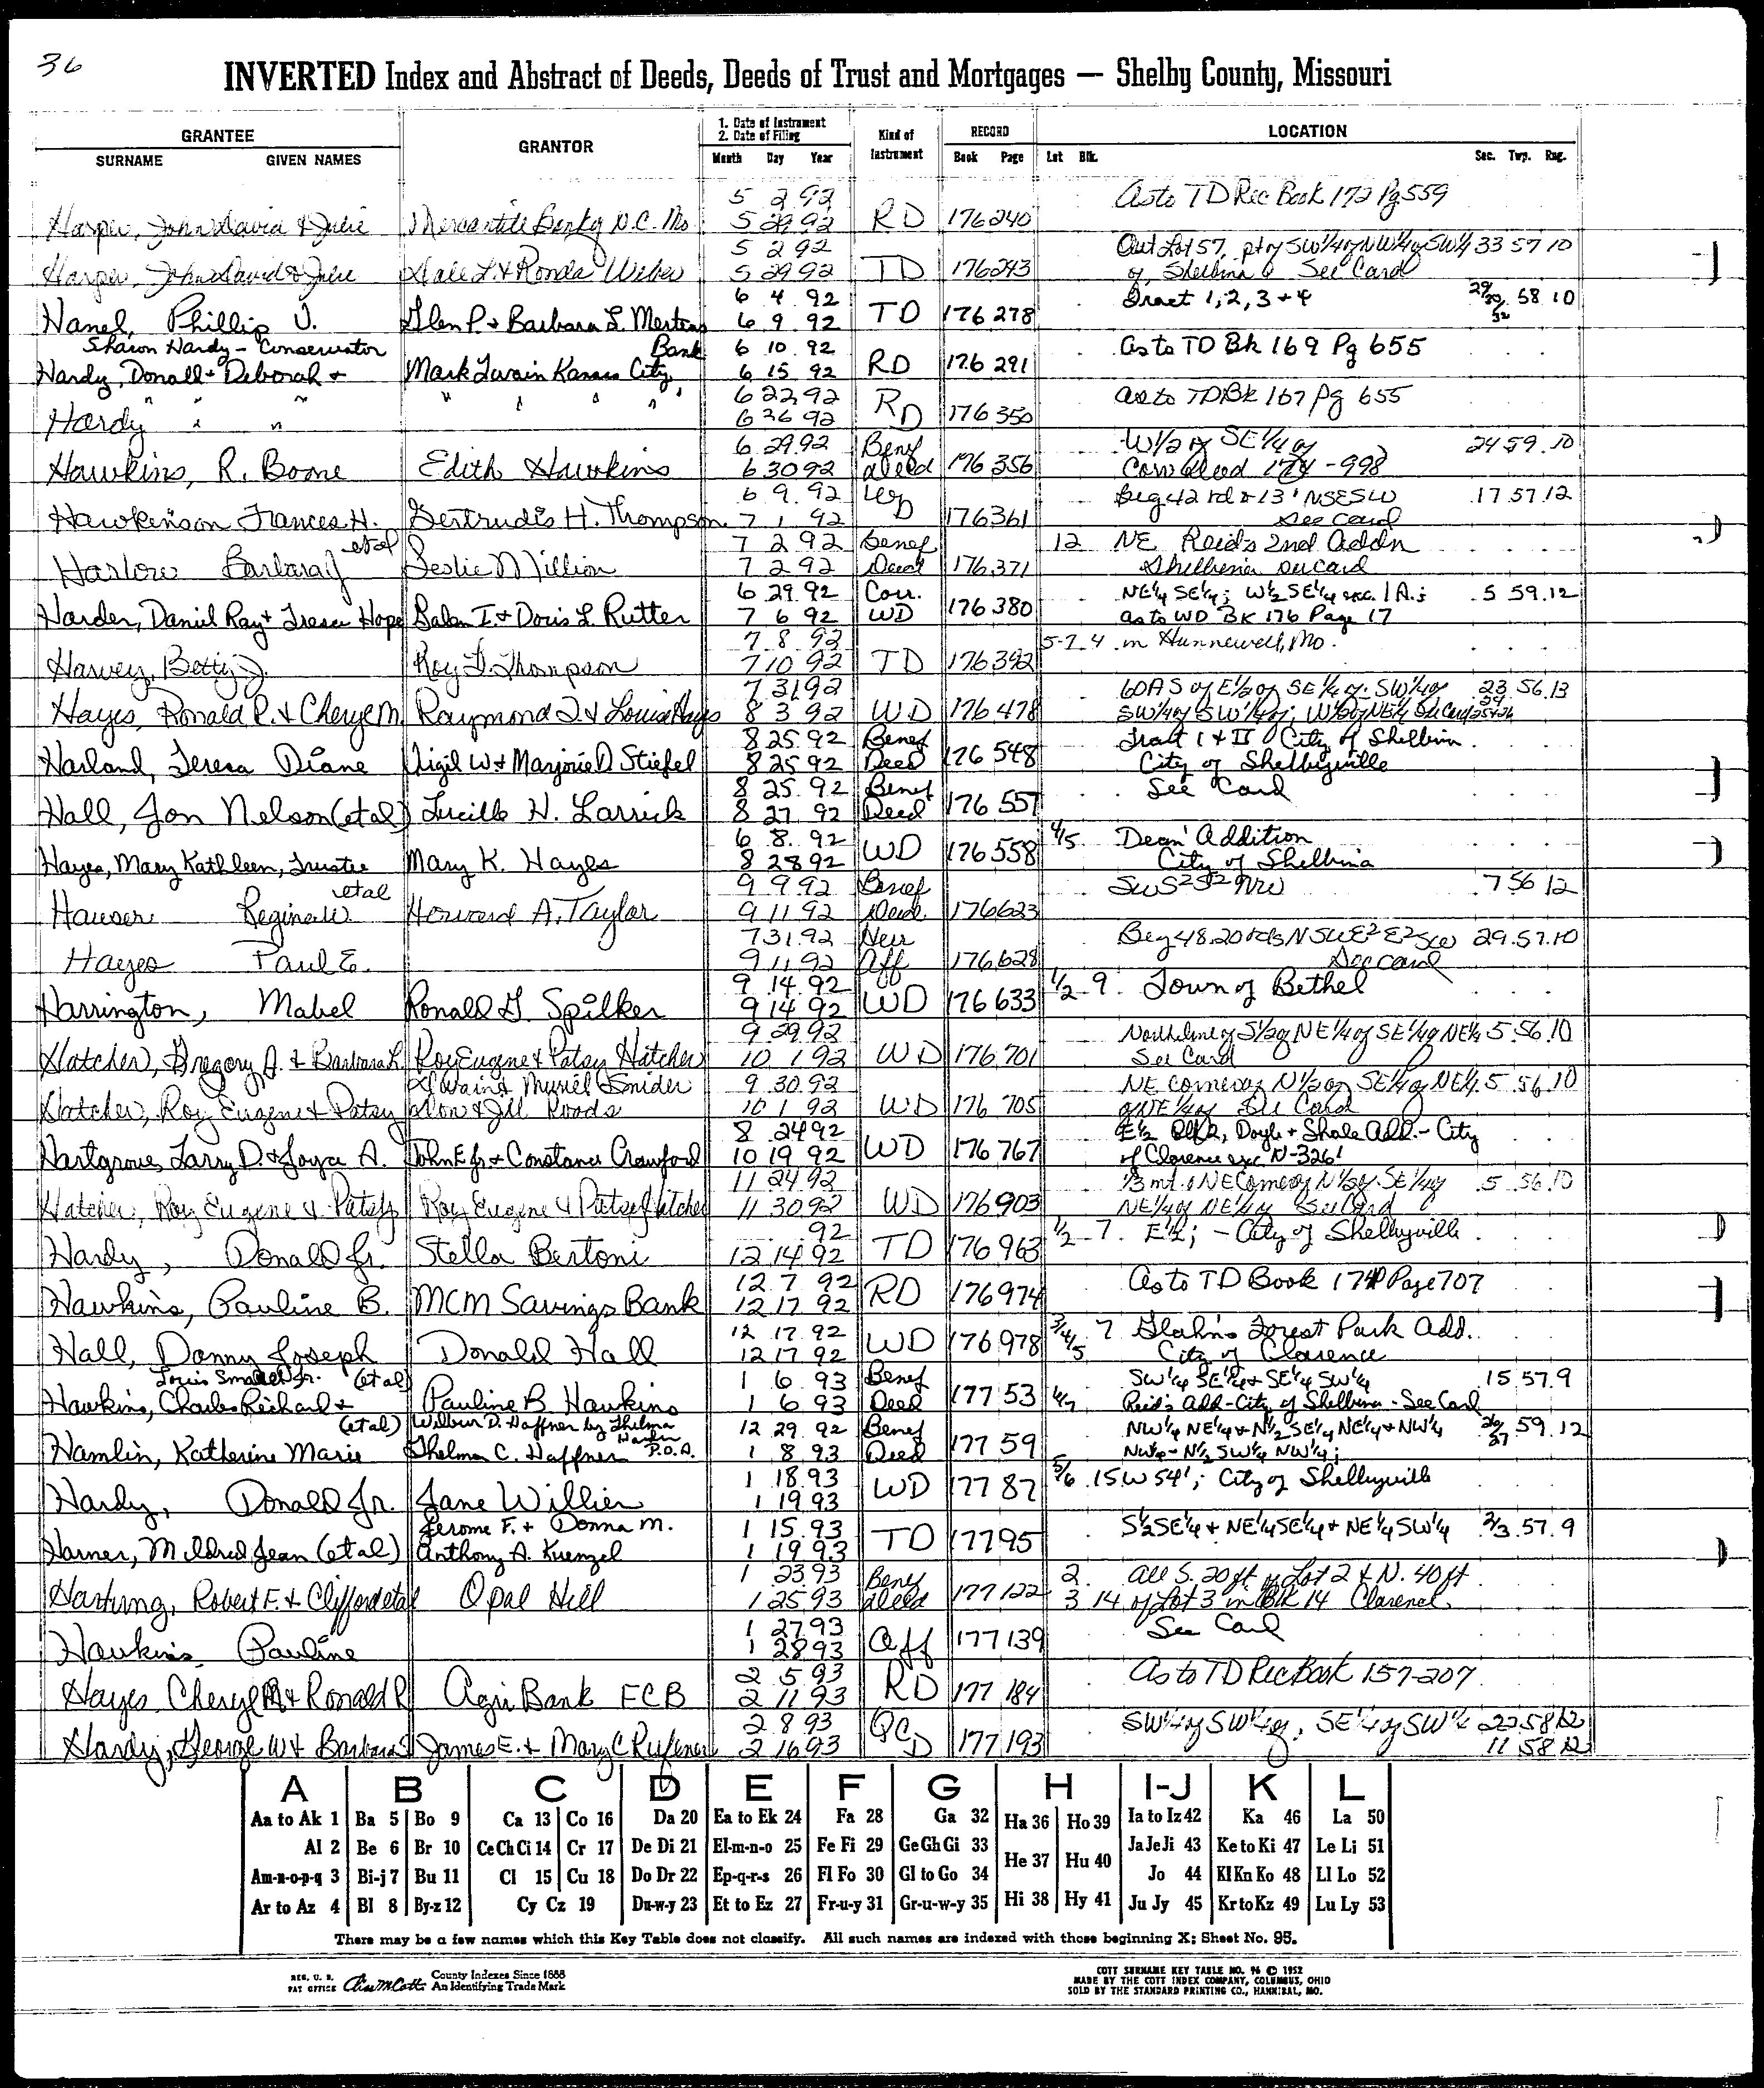 36
INVERTED Index and Abstract of Deeds, Deeds of Trust and Mortgages — Shelby County, Missouri
GRANTEE GRANTOR 1. Date of Instrument 2. Date of Filing Kind of Instrument RECORD LOCATION
SURNAME GIVEN NAMES Month Day Year Book Page Lot Blk. Sec. Twp. Rng.
5 2 92 As to TD Rec Book 172 Pg 559
Harper, John David & Julie Mercantile Bank of N.C. Mo 5 29 92 RD 176 240
5 2 92 Out Lot 57, pt of SW1/4 of NW1/4 of SW1/4 33 57 10
Harper, John David & Julie Dale L. & Ronda Weber 5 29 92 TD 176 243 of Shelbina See Card
6 4 92 Tract 1, 2, 3 + 4 29/30/32 58 10
Hanel, Phillip J. Glen P. & Barbara L. Mertens 6 9 92 TD 176 278
Sharon Hardy - Conservator Bank 6 10 92 As to TD Bk 169 Pg 655
Hardy, Donall + Deborah + Mark Twain Kansas City 6 15 92 RD 176 291
" " " " " " " 6 22 92 As to TD Bk 167 Pg 655
Hardy " " 6 26 92 RD 176 350
6 29 92 Benf W1/2 of SE1/4 of 24 59 10
Hawkins, R. Boone Edith Hawkins 6 30 92 Deed 176 356 Corr Deed 174-998
6 9 92 Beg 42 rd & 13' NSESW 17 57 12
Hawkinson Frances H. Gertrudis H. Thompson 7 1 92 D 176 361 See card
etal 7 2 92 Benef 12 NE Reid's 2nd Addn
Harlow Barbara J Leslie Million 7 2 92 Deed 176 371 Shelbina See card
6 29 92 Corr. NE1/4 SE1/4; W1/2 SE1/4 exc 1 A.; 5 59 12
Harder, Daniel Ray + Tresa Hope Galen I. + Doris L. Rutter 7 6 92 WD 176 380 as to WD Bk 176 Page 17
7 8 92 5-7 4 in Hunnewell, Mo.
Harvey, Betty J. Roy F. Thompson 7 10 92 TD 176 392
7 31 92 60A S of E1/2 of SE1/4 of SW1/4 of 23 56 13
Hayes, Ronald P. & Cheryl M. Raymond J. & Louise Hayes 8 3 92 WD 176 478 SW1/4 of SW1/4 of; W1/2 of NE1/4 See Card 25+26
8 25 92 Benef Tract I & II City of Shelbina
Harland, Teresa Diane Virgil W. & Marjorie D. Stiefel 8 25 92 Deed 176 548 City of Shelbyville
8 25 92 Benef See Card
Hall, Jon Nelson (etal) Lucille H. Larrick 8 27 92 Deed 176 557
6 8 92 4/5 Dean' Addition
Hayes, Mary Kathleen, Trustee Mary K. Hayes 8 28 92 WD 176 558 City of Shelbina
etal 9 9 92 Benef SwS2S2NW 7 56 12
Hauser Regina W. Howard A. Taylor 9 11 92 Deed 176 623
7 31 92 Heir Beg 48.20 rds N SWE2E2SW 29 57 10
Hayes Paul E. 9 11 92 Aff 176 628 See card
9 14 92 1/2 9 Town of Bethel
Harrington, Mabel Ronald G. Spilker 9 14 92 WD 176 633
9 29 92 North line of S1/2 of NE1/4 of SE1/4 of NE1/4 5 56 10
Hatcher, Gregory A. & Barbara L. Roy Eugene & Patsy Hatcher 10 1 92 WD 176 701 See Card
Muriel Snider 9 30 92 NE corner of N1/2 of SE1/4 of NE1/4 5 56 10
Hatcher, Roy Eugene & Patsy Don & Jill Roads 10 1 92 WD 176 705 of NE1/4 of See Card
8 24 92 E1/2 Blk 2, Doyle + Shale Add. - City
Hartgrove, Larry D. & Joyce A. John E Jr + Constance Crawford 10 19 92 WD 176 767 of Clarence exc N-326'
11 24 92 1/3 mt. of NE Corner of N1/2 of SE1/4 of 5 56 10
Hatcher, Roy Eugene & Patsy Roy Eugene & Patsy Hatcher 11 30 92 WD 176 903 NE1/4 of NE1/4 of See Card
92 1/2 7 E1/2; - City of Shelbyville
Hardy, Donald Jr. Stella Bertoni 12 14 92 TD 176 963
12 7 92 As to TD Book 174 Page 707
Hawkins, Pauline B. MCM Savings Bank 12 17 92 RD 176 974
12 17 92 3/4/5 7 Glahn's Forest Park Add.
Hall, Danny Joseph Donald Hall 12 17 92 WD 176 978 City of Clarence
Louis Smaller Jr. (etal) 1 6 93 Benef SW1/4 SE1/4 + SE1/4 SW1/4 15 57 9
Hawkins, Charles Richard + Pauline B Hawkins 1 6 93 Deed 177 53 6/7 Reid's Add-City of Shelbina - See Card
(etal) Wilbur D. Haffner by Thelma 12 29 92 Benef NW1/4 NE1/4 + N1/2 SE1/4 NE1/4 + NW1/4 26/27 59 12
Hamlin, Katherine Marie Thelma C. Haffner P.O.A. 1 8 93 Deed 177 59 NW1/4 - N1/2 SW1/4 NW1/4;
1 18 93 5/6 15 W 54'; City of Shelbyville
Hardy, Donald Jr. Jane Willier 1 19 93 WD 177 87
Jerome F. + Donna M. 1 15 93 S1/2SE1/4 + NE1/4SE1/4 + NE1/4SW1/4 2/3 57 9
Harner, Mildred Jean (etal) Anthony A. Kuenzel 1 19 93 TD 177 95
1 23 93 Benef 2 all S. 20 ft of Lot 2 & N. 40 ft
Hartung, Robert F. & Clifford etal Opal Hill 1 25 93 Deed 177 122 3 14 of Lot 3 in Blk 14 Clarence
1 27 93 See Card
Hawkins Pauline 1 28 93 Aff 177 139
2 5 93 As to TD Rec Book 157-207
Hayes Cheryl M & Ronald P Agri Bank FCB 2 11 93 RD 177 184
2 8 93 SW1/4 of SW1/4 of, SE1/4 of SW1/4 22 58 12
Hardy, George W & Barbara J James E. & Mary C Rufener 2 16 93 QCD 177 193 11 58 12
A B C D E F G H I-J K L
Aa to Ak 1 Ba 5 Bo 9 Ca 13 Co 16 Da 20 Ea to Ek 24 Fa 28 Ga 32 Ha 36 Ho 39 Ia to Iz 42 Ka 46 La 50
Al 2 Be 6 Br 10 Ce Ch Ci 14 Cr 17 De Di 21 El-m-n-o 25 Fe Fi 29 Ge Gh Gi 33 He 37 Hu 40 Ja Je Ji 43 Ke to Ki 47 Le Li 51
Am-n-o-p-q 3 Bi-j 7 Bu 11 Cl 15 Cu 18 Do Dr 22 Ep-q-r-s 26 Fl Fo 30 Gl to Go 34 Hi 38 Hy 41 Jo 44 Kl Kn Ko 48 Ll Lo 52
Ar to Az 4 Bl 8 By-z 12 Cy Cz 19 Du-w-y 23 Et to Ez 27 Fr-u-y 31 Gr-u-w-y 35 Ju Jy 45 Kr to Kz 49 Lu Ly 53
There may be a few names which this Key Table does not classify. All such names are indexed with those beginning X; Sheet No. 95.
REG. U. S. PAT OFFICE County Indexes Since 1888 An Identifying Trade Mark
COTT SURNAME KEY TABLE NO. 96 © 1952
MADE BY THE COTT INDEX COMPANY, COLUMBUS, OHIO
SOLD BY THE STANDARD PRINTING CO., HANNIBAL, MO.